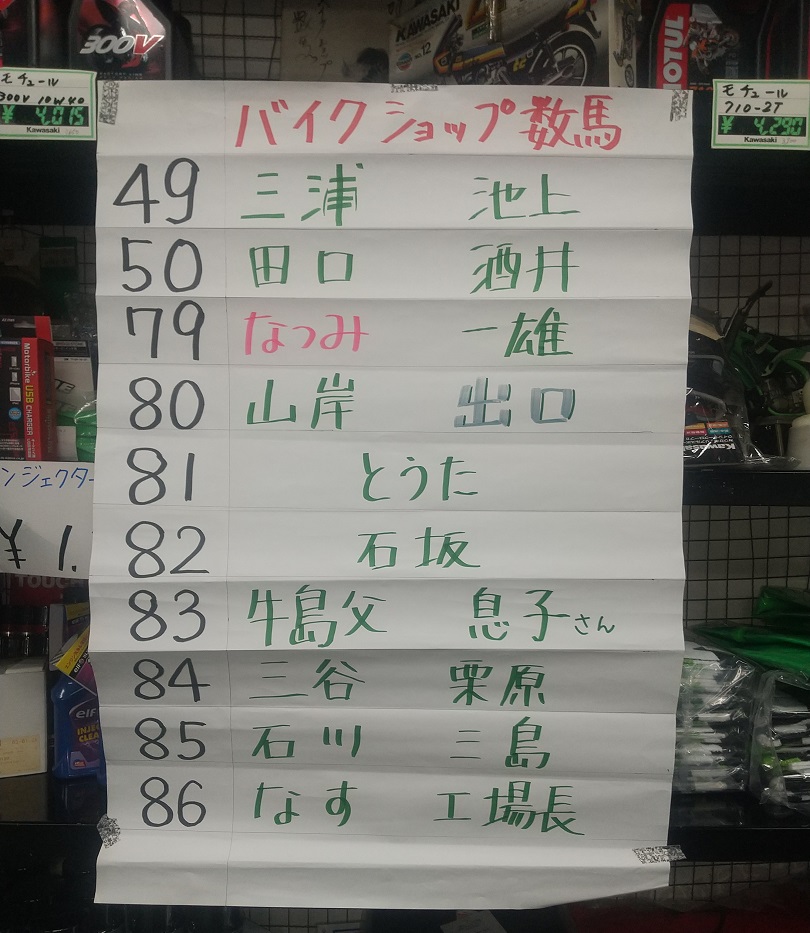 300V
KAWASAKI
No.12
MOTUL
モチュール
300V 10W40
¥ 4,015
Kawasaki
モチュール
710-2T
¥ 4,290
Kawasaki
バイクショップ数馬
49 三浦 池上
50 田口 酒井
79 なつみ 一雄
80 山岸 出口
81 とうた
82 石坂
83 牛島父 息子さん
84 三谷 栗原
85 石川 三島
86 なす 工場長
Motorbike USB CHARGER
Kawasaki
ンジェクター
¥1.
TOUG
elf
INJECTION
CLEA